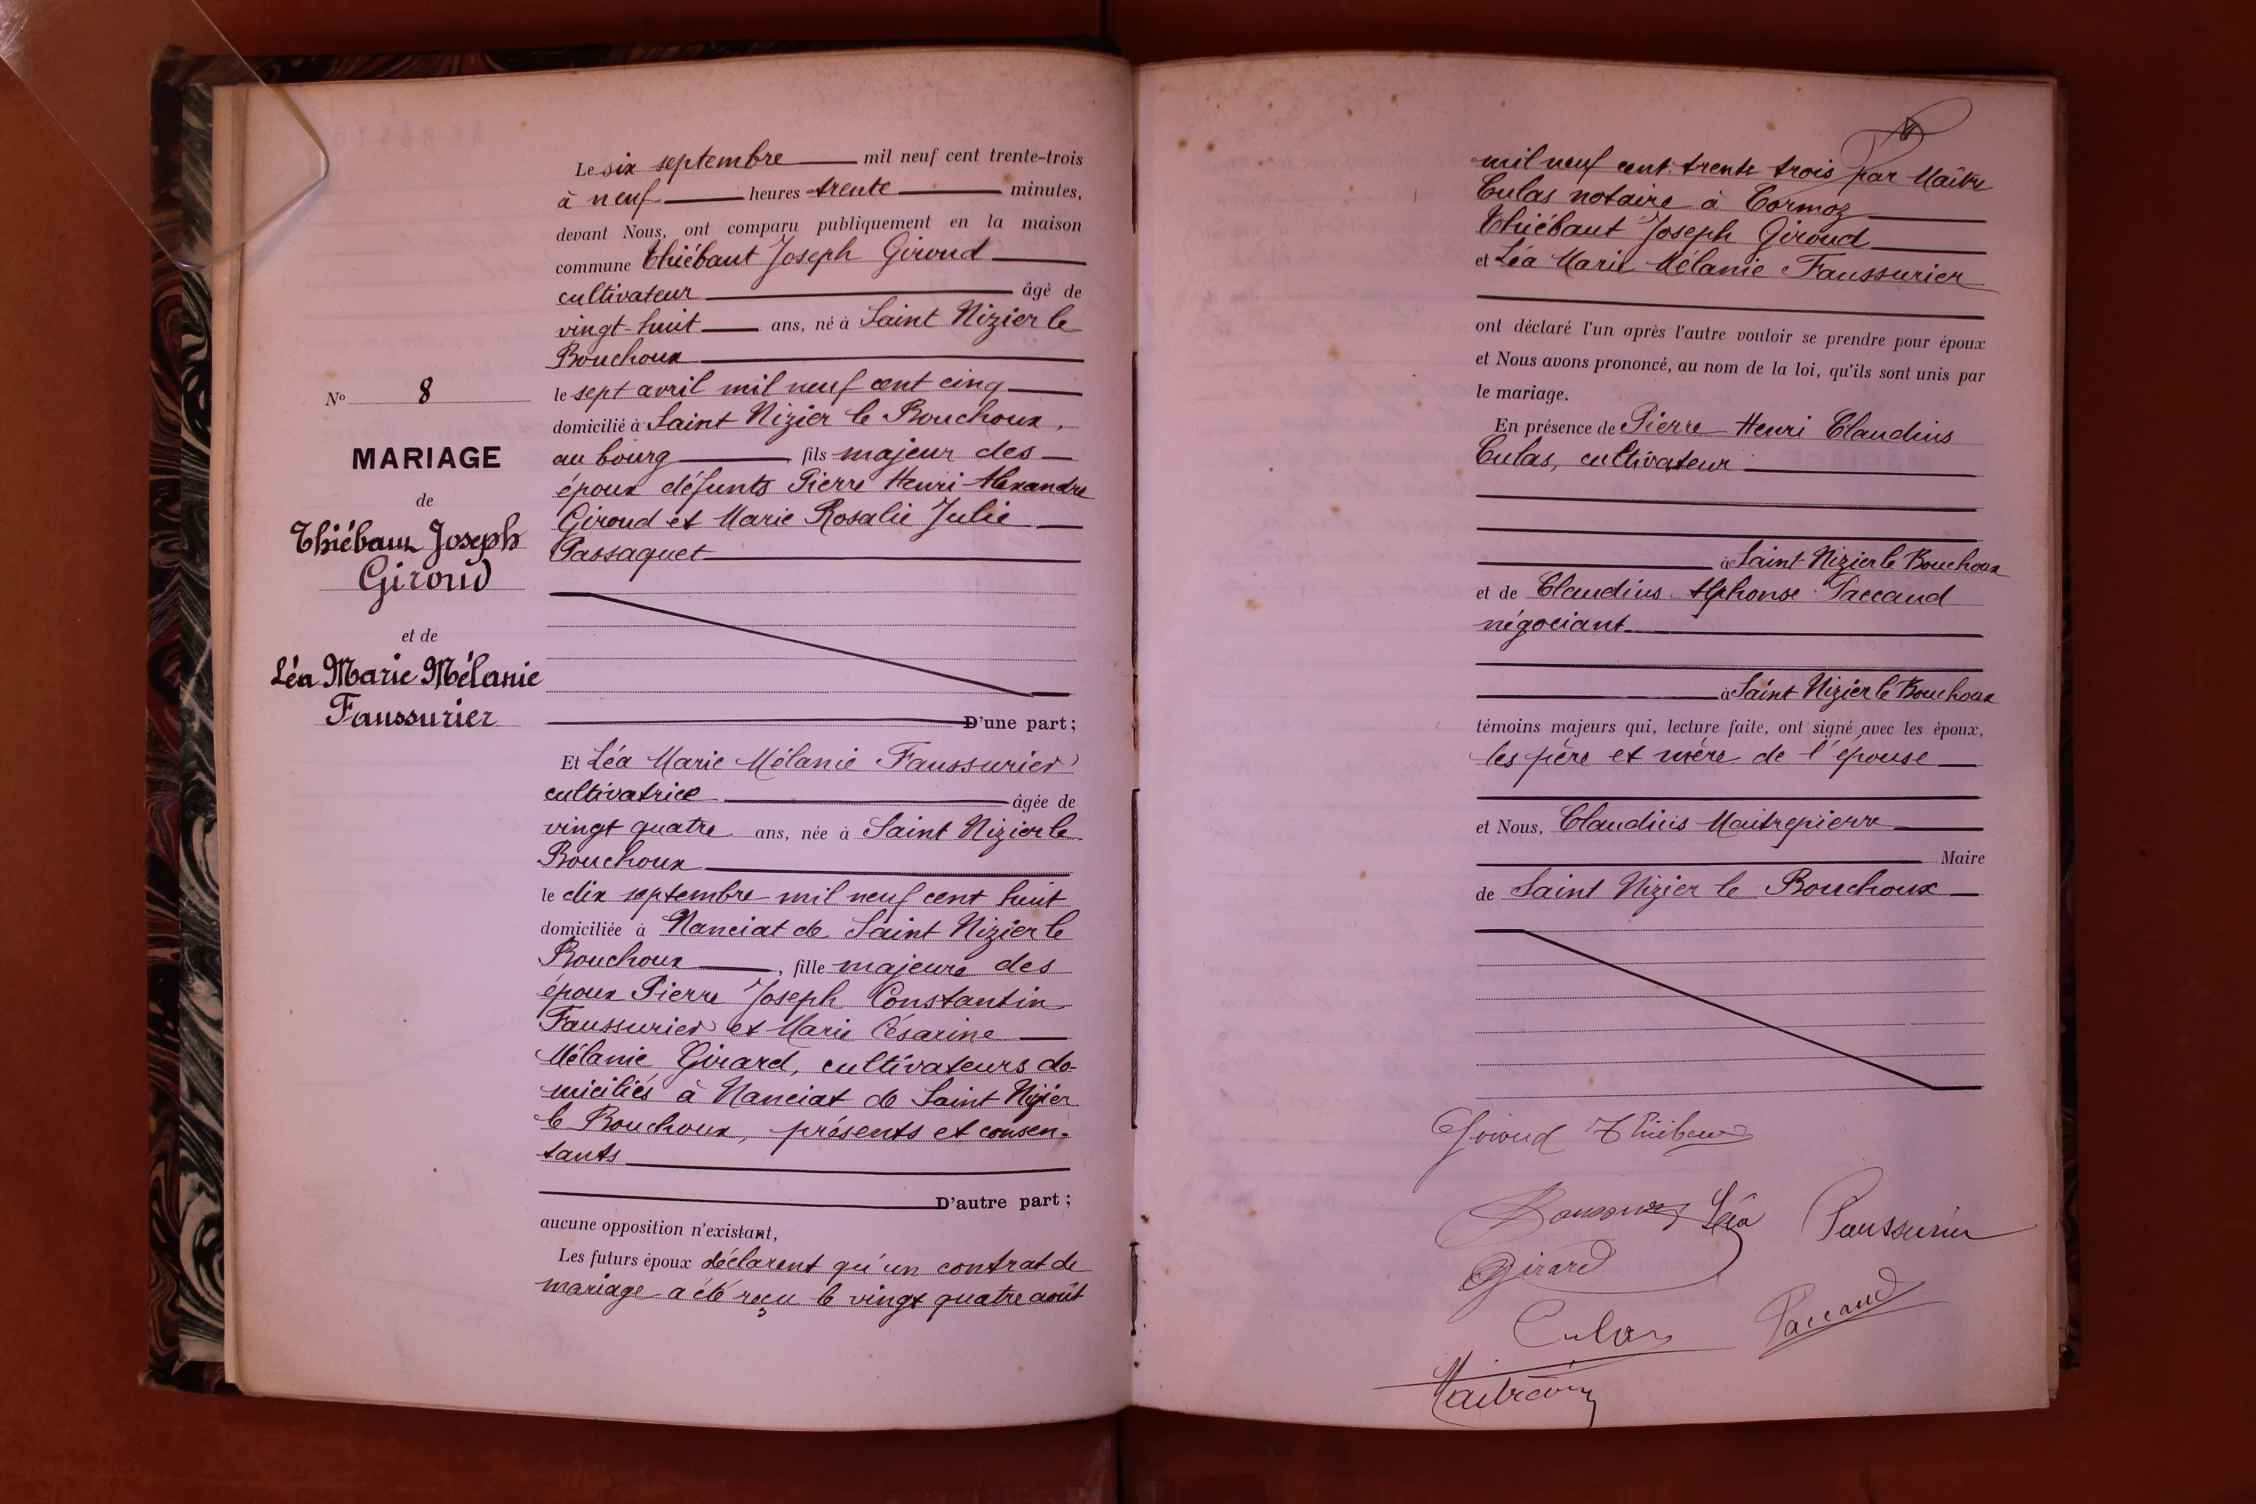 N° 8
MARIAGE
de
Thiébaut Joseph
Giroud
et de
Léa Marie Mélanie
Faussurier
Le six septembre mil neuf cent trente-trois
à neuf heures trente minutes,
devant Nous, ont comparu publiquement en la maison
commune Thiébaut Joseph Giroud
cultivateur âgé de
vingt-huit ans, né à Saint Nizier le
Bouchoux
le sept avril mil neuf cent cinq
domicilié à Saint Nizier le Bouchoux,
au bourg, fils majeur des
époux défunts Pierre Henri Alexandre
Giroud et Marie Rosalie Julie
Passaquet
D'une part;
Et Léa Marie Mélanie Faussurier
cultivatrice âgée de
vingt quatre ans, née à Saint Nizier le
Bouchoux
le dix septembre mil neuf cent huit
domiciliée à Nanciat de Saint Nizier le
Bouchoux, fille majeure des
époux Pierre Joseph Constantin
Faussurier et Marie Césarine
Mélanie Girard, cultivateurs do-
miciliés à Nanciat de Saint Nizier
le Bouchoux, présents et consen-
tants
D'autre part;
aucune opposition n'existant,
Les futurs époux déclarent qu'un contrat de
mariage a été reçu le vingt quatre août
mil neuf cent trente trois par Maître
Culas notaire à Cormoz
Thiébaut Joseph Giroud
et Léa Marie Mélanie Faussurier
ont déclaré l'un après l'autre vouloir se prendre pour époux
et Nous avons prononcé, au nom de la loi, qu'ils sont unis par
le mariage.
En présence de Pierre Henri Claudius
Culas, cultivateur
à Saint Nizier le Bouchoux
et de Claudius Alphonse Paccaud
négociant
à Saint Nizier le Bouchoux
témoins majeurs qui, lecture faite, ont signé avec les époux,
les père et mère de l'épouse
et Nous, Claudius Maitrepierre
Maire
de Saint Nizier le Bouchoux
Giroud Thiébaut
Léa Faussurier
Girard
Culas Paccaud